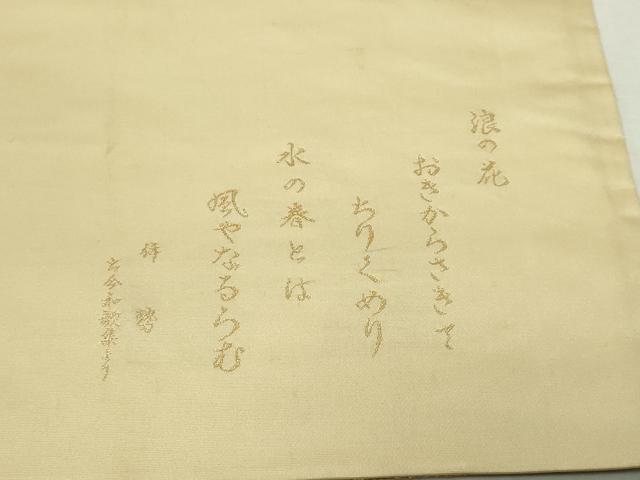 浪の花
おきからさきて
ちりくめり
水の春とは
風やなるらむ
伊勢
古今和歌集より